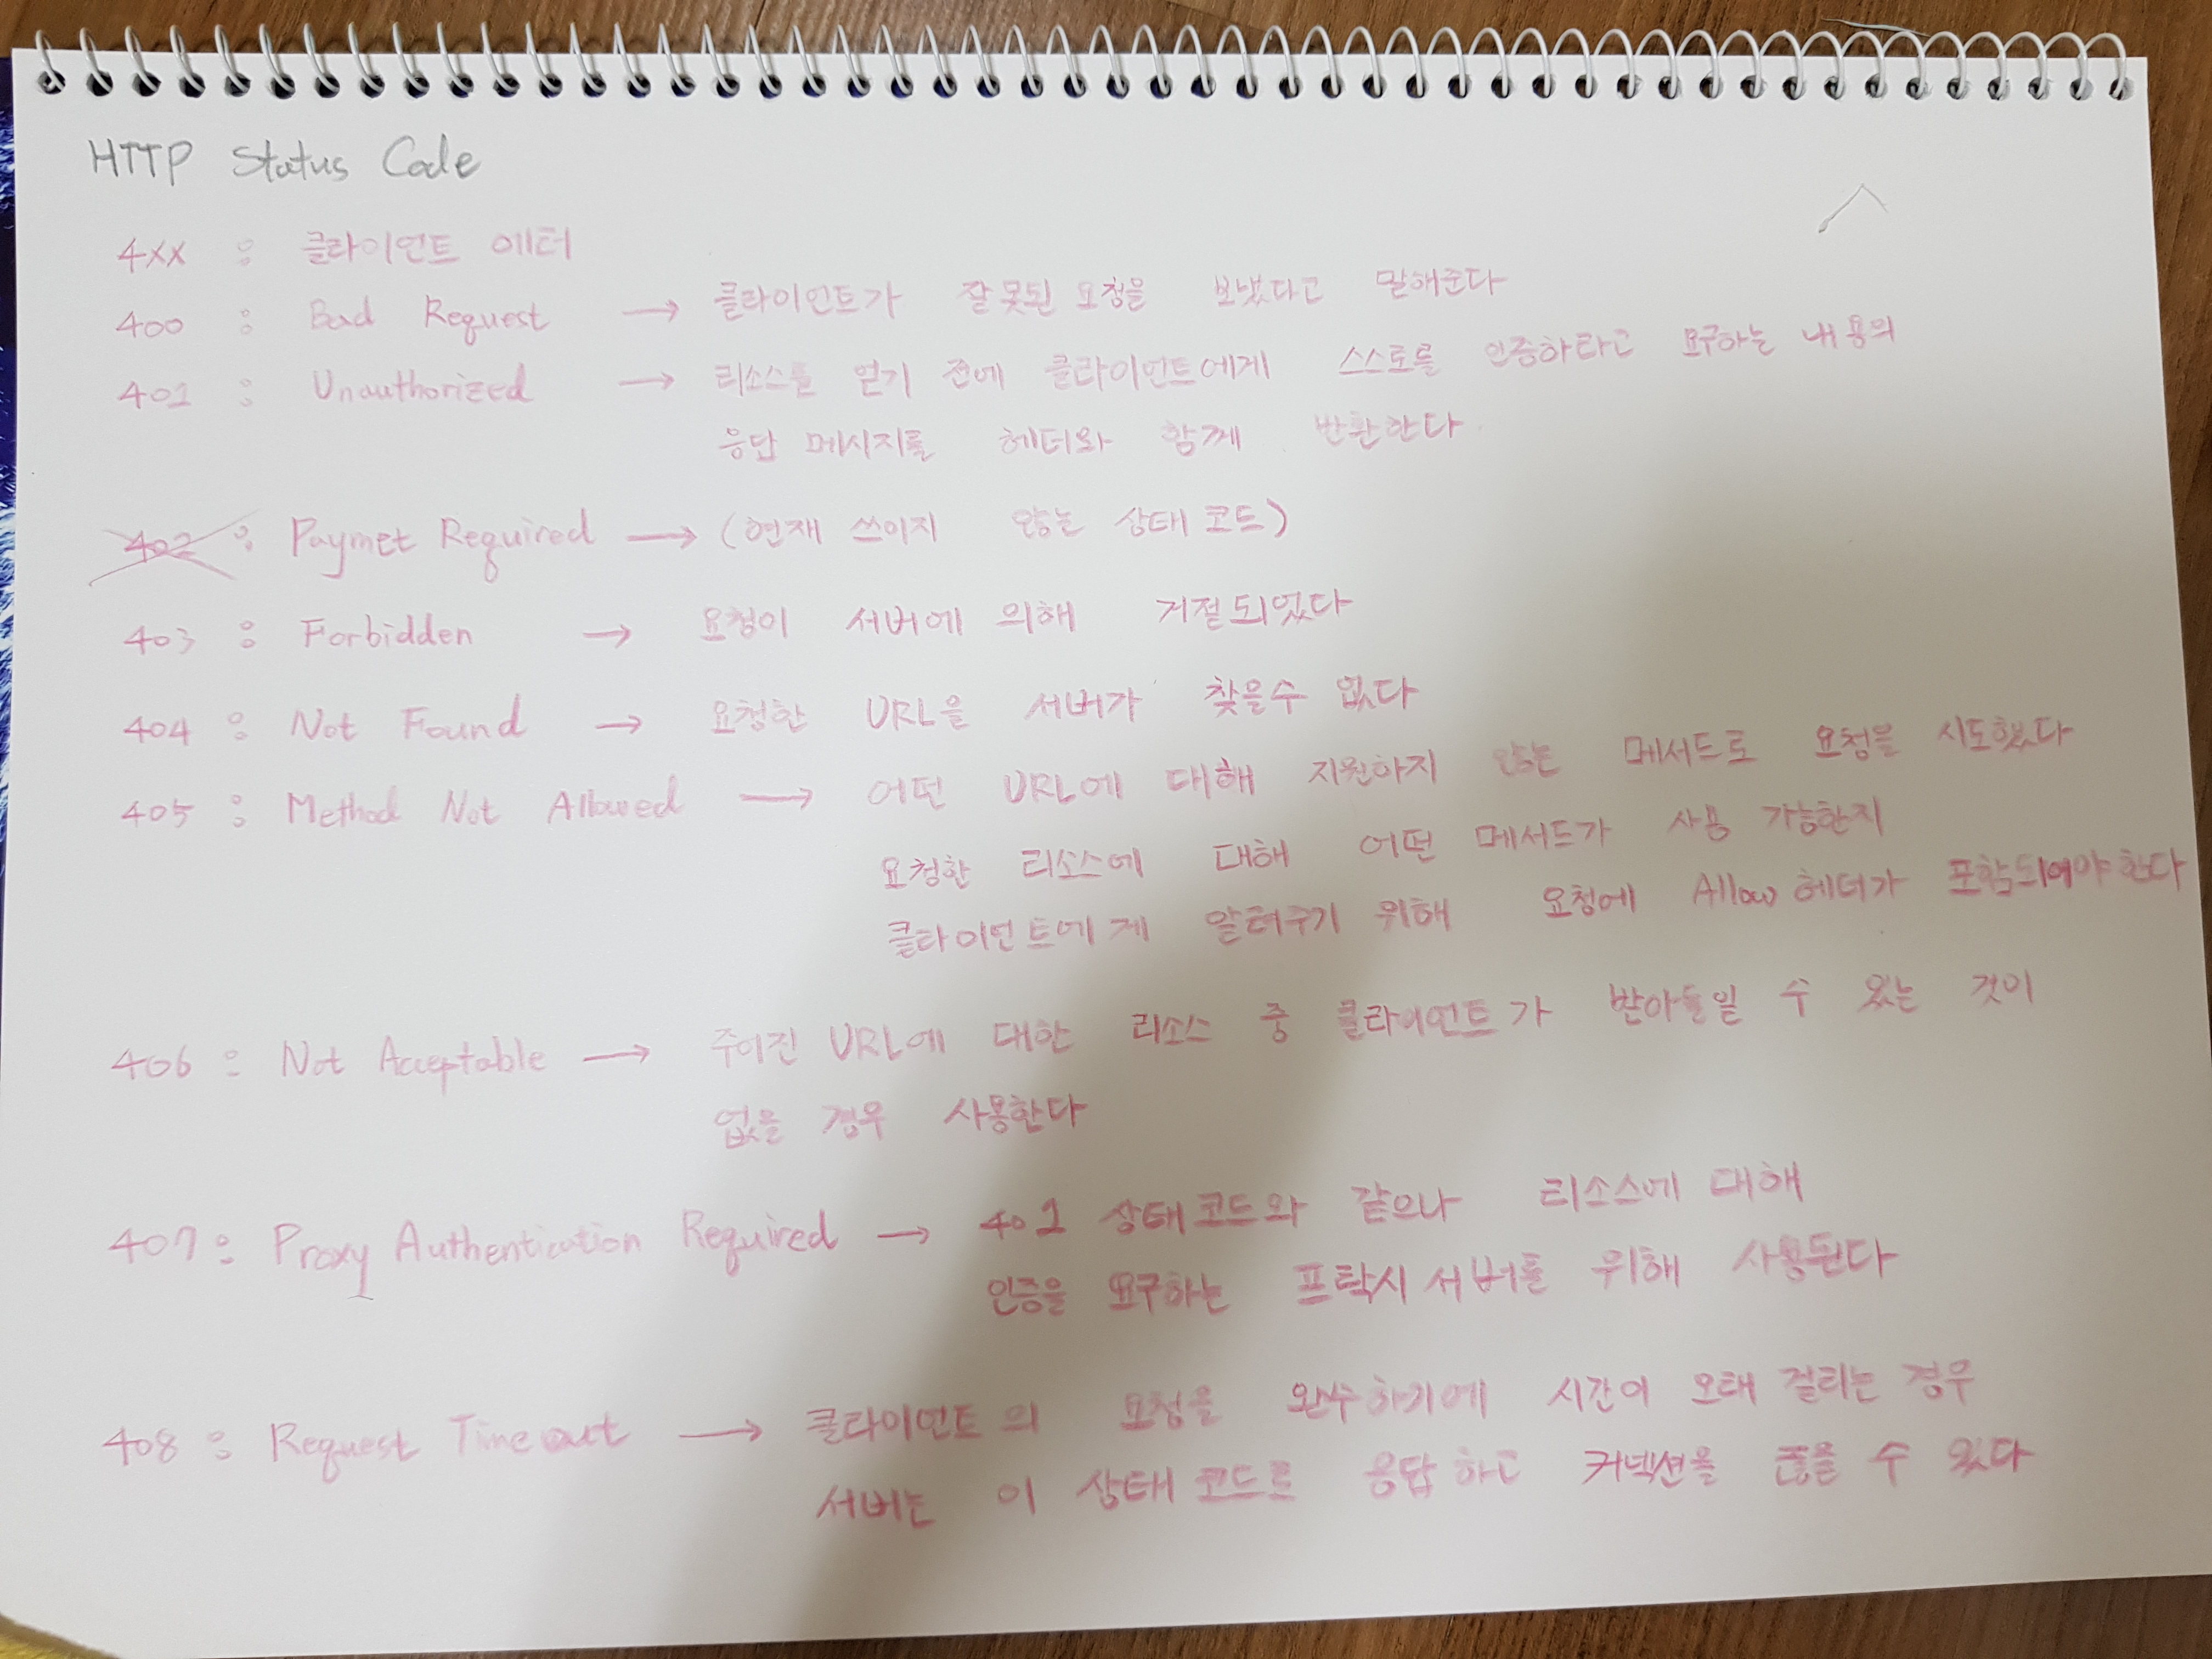 HTTP Status Code
4XX : 클라이언트 에러
400 : Bad Request → 클라이언트가 잘못된 요청을 보냈다고 말해준다
401 : Unauthorized → 리소스를 얻기 전에 클라이언트에게 스스로를 인증하라고 요구하는 내용의
응답 메시지를 헤더와 함께 반환한다.
402 : Paymet Required → (현재 쓰이지 않는 상태 코드)
403 : Forbidden → 요청이 서버에 의해 거절되었다
404 : Not Found → 요청한 URL을 서버가 찾을수 없다
405 : Method Not Allowed → 어떤 URL에 대해 지원하지 않은 메서드로 요청을 시도했다
요청한 리소스에 대해 어떤 메서드가 사용 가능한지
클라이언트에게 알려주기 위해 요청에 Allow 헤더가 포함되어야 한다
406 : Not Acceptable → 주어진 URL에 대한 리소스 중 클라이언트가 받아들일 수 있는 것이
없을 경우 사용한다
407 : Proxy Authentication Required → 401 상태 코드와 같으나 리소스에 대해
인증을 요구하는 프락시 서버를 위해 사용된다
408 : Request Timeout → 클라이언트의 요청을 완수하기에 시간이 오래 걸리는 경우
서버는 이 상태 코드로 응답하고 커넥션을 끊을 수 있다